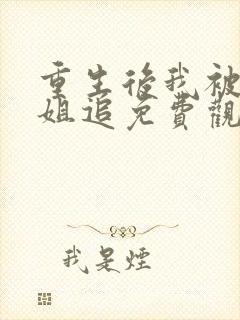 重生後我被
姐追免費觀
我是煙